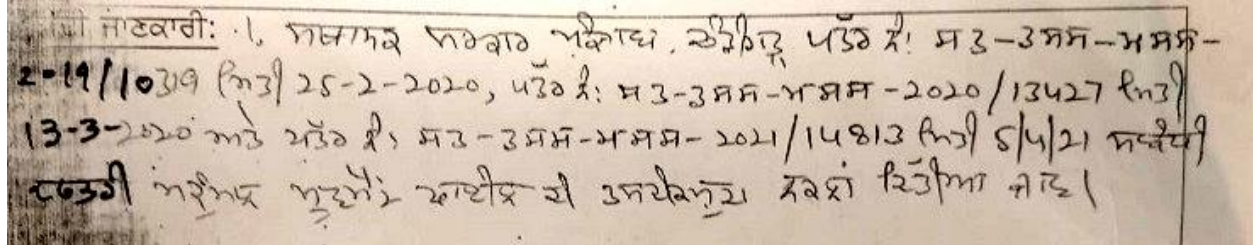 ਜਾਣਕਾਰੀ: 1, ਸਥਾਨਕ ਸਰਕਾਰ ਪੰਜਾਬ, ਚੰਡੀਗੜ੍ਹ ਪੱਤਰ ਨੰ: ਸ 3-3ਸਸ-ਅਸਸ-
2-19/10319 ਮਿਤੀ 25-2-2020, ਪੱਤਰ ਨੰ: ਸ 3-3ਸਸ-ਅਸਸ-2020/13427 ਮਿਤੀ
13-3-2020 ਅਤੇ ਪੱਤਰ ਨੰ: ਸ3-3ਸਸ-ਅਸਸ-2021/14813 ਮਿਤੀ 5/4/21 ਸਬੰਧੀ
ਦਫਤਰੀ ਫਾਈਲ ਦੀ ਤਸਦੀਕਸ਼ੁਦਾ ਨਕਲਾਂ ਦਿੱਤੀਆ ਜਾਣ।